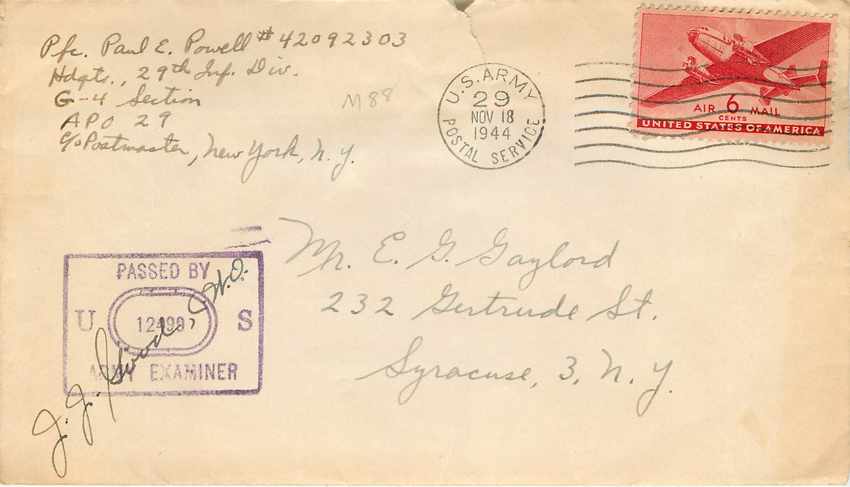 Pfc. Paul E. Powell # 42092303
Hdqts., 29th Inf. Div.
G-4 Section
APO 29
c/o Postmaster, New York, N.Y.
M88
U.S. ARMY
29
NOV 18
1944
POSTAL SERVICE
AIR 6 MAIL
CENTS
UNITED STATES OF AMERICA
Mr. E. G. Gaylord
232 Gertrude St.
Syracuse, 3, N.Y.
PASSED BY
U 12499 S
ARMY EXAMINER
J. J.